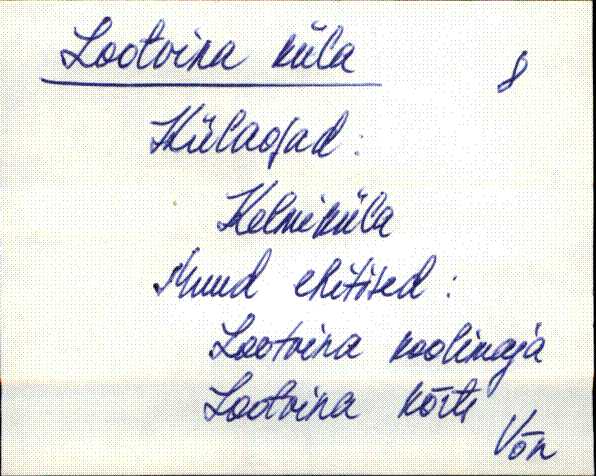 Lootvina küla
8
Külaosad:
Kelmiküla
Muud ehitised:
Lootvina koolimaja
Lootvina kõrts
Võn